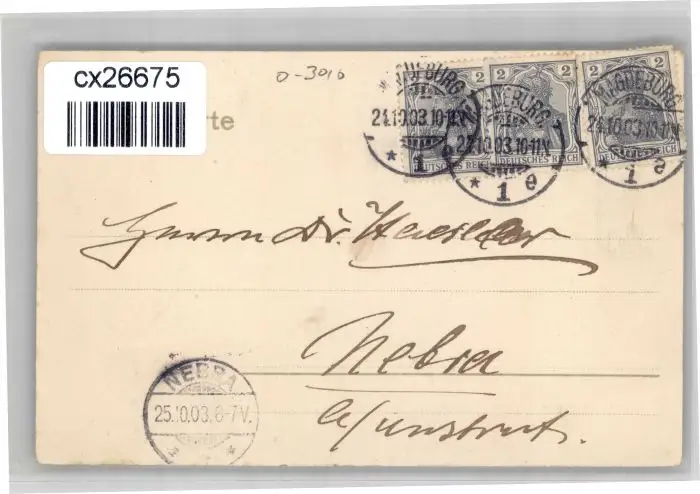 cx26675
0-3016
rte
2 2 2
MAGDEBURG
24.10.03.10-11V.
* 1 e
MAGDEBURG
24.10.03.10-11V.
* 1 e
MAGDEBURG
24.10.03.10-11V.
* 1 e
DEUTSCHES REICH
DEUTSCHES REICH
DEUTSCHES REICH
Herrn Dr.
Nebra
a/unstrut.
NEBRA
25.10.03.6-7V.